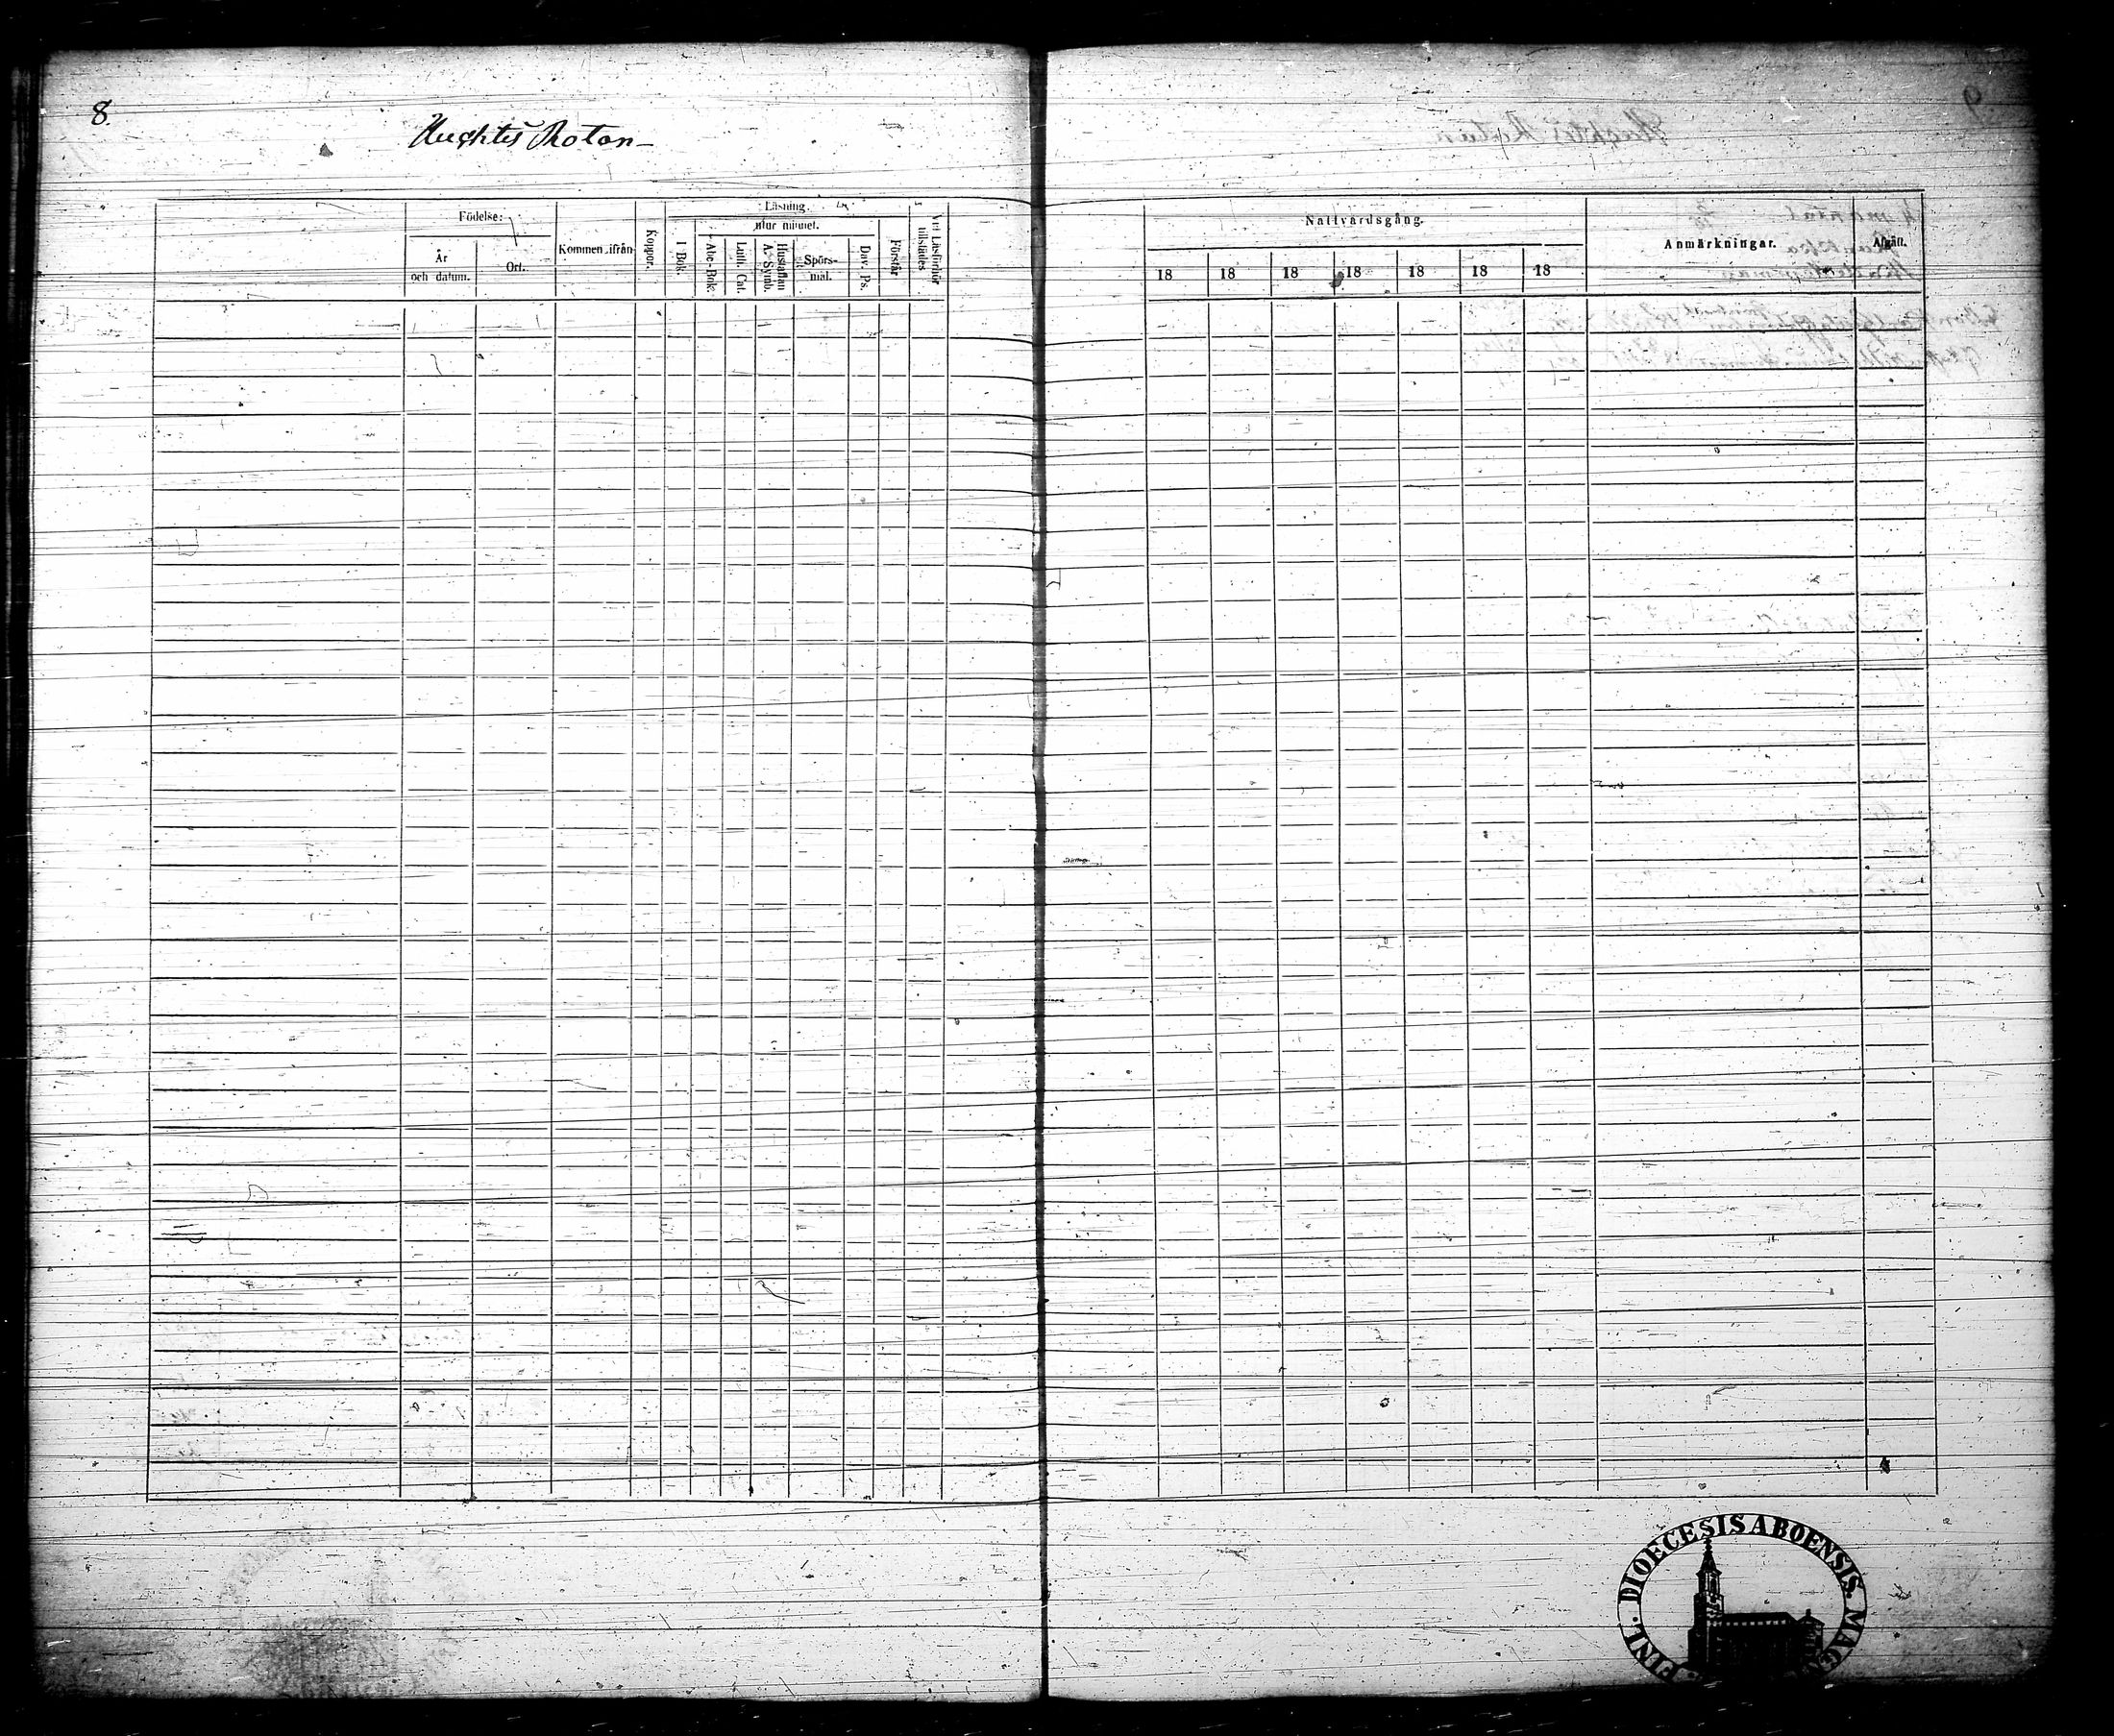 8.
Huchtis Rotan
Födelse:
År och datum.
Ort.
Kommen ifrån
Koppor.
Läsning.
utur minnet.
I Bok.
Abc-Bok.
Luth. Cat.
Hustaflan A. Symb.
Spörs-mål.
Dav. Ps.
Förstår
Vid Läsförhör tillstädes
Nattvardsgång.
18 18 18 18 18 18 18
Anmärkningar.
Afgått.
FINL. DIOECESIS ABOENSIS. MAGN.